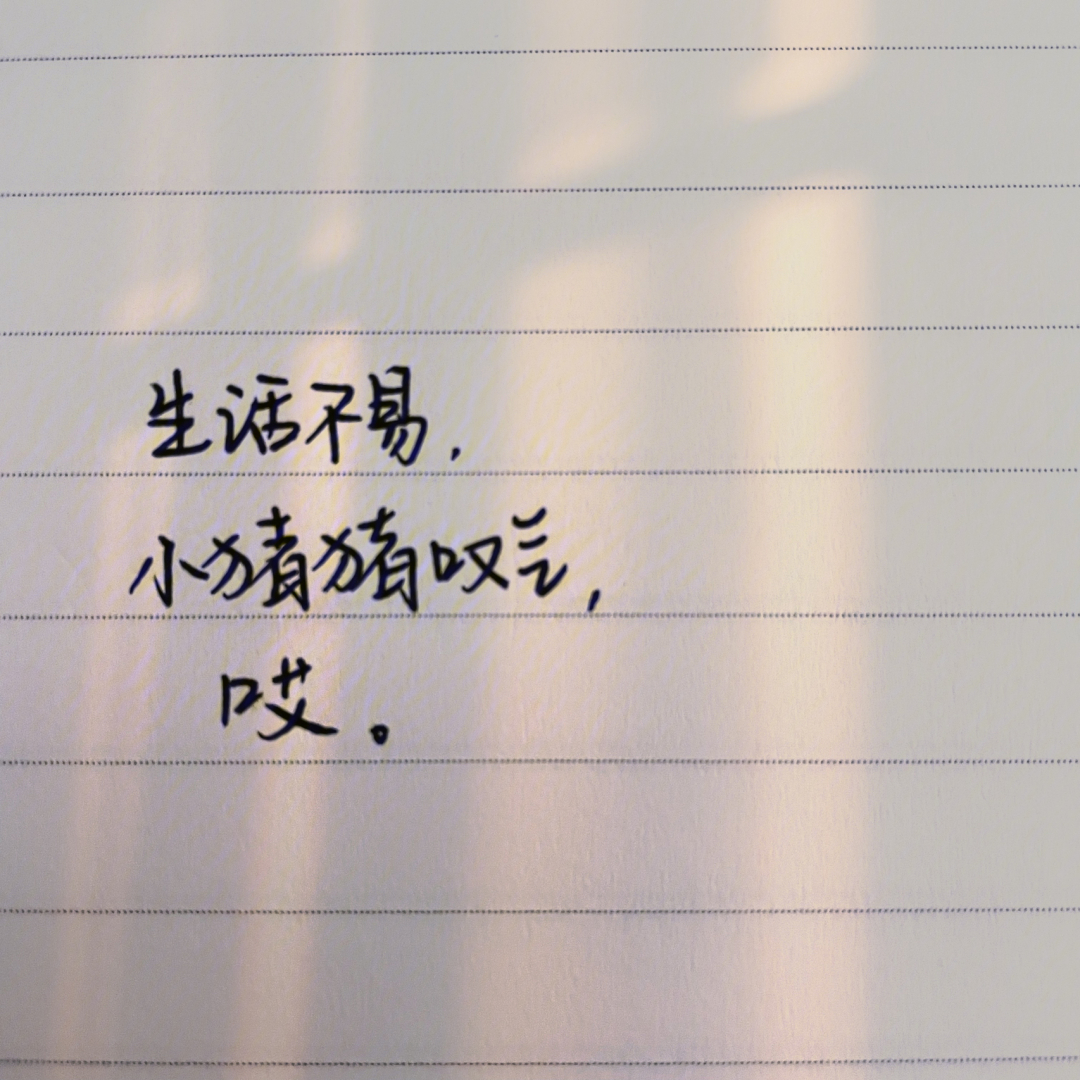 生活不易，
小猪猪叹气，
哎。